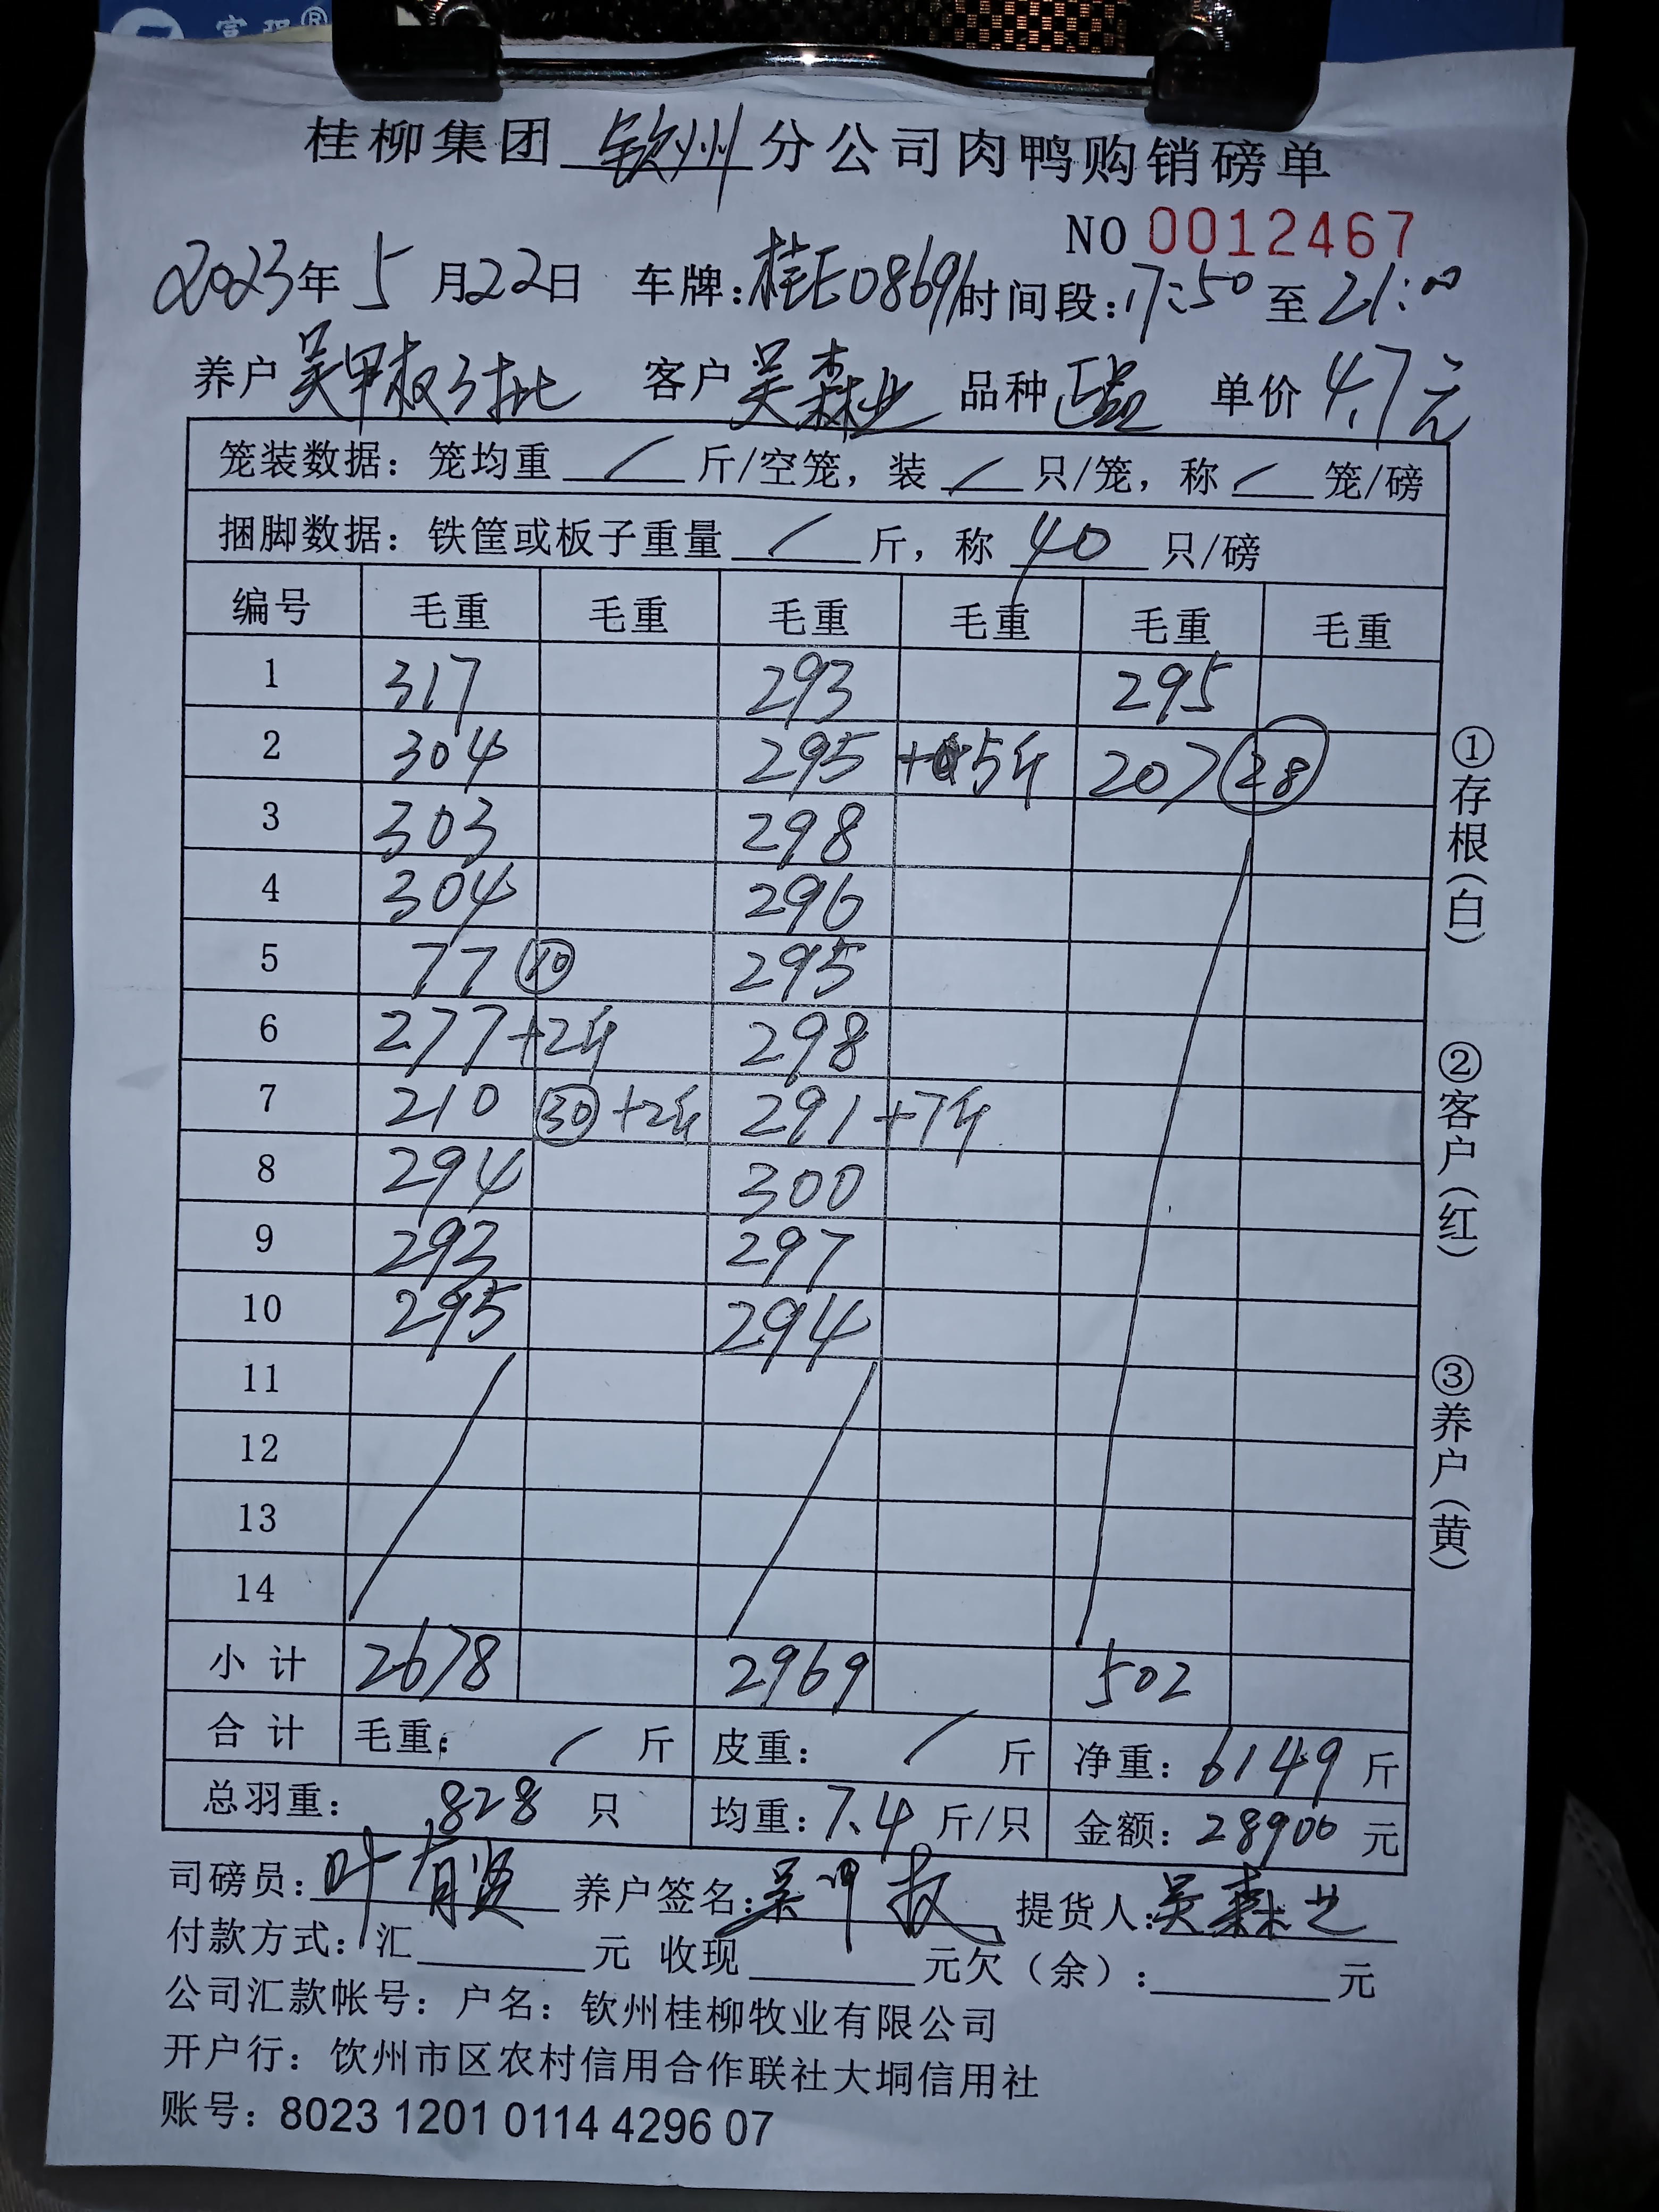 富强®
桂柳集团 钦州 分公司肉鸭购销磅单
NO 0012467
2023年 5 月22日 车牌:桂E08691时间段:17:50 至 21:00
养户 吴甲权3批 客户 吴森业 品种 单价 4.7元
笼装数据: 笼均重 / 斤/空笼, 装 / 只/笼, 称 / 笼/磅
捆脚数据: 铁筐或板子重量 / 斤, 称 40 只/磅
编号 毛重 毛重 毛重 毛重 毛重 毛重
1 317 293 295
2 304 295 +5斤 207 (28)
3 303 298
4 304 296
5 77 (10) 295
6 277 +2斤 298
7 210 (30) +2斤 291 +7斤
8 294 300
9 293 297
10 295 294
11
12
13
14
小计 2678 2969 502
合计 毛重: / 斤 皮重: / 斤 净重: 6149 斤
总羽重: 828 只 均重: 7.4 斤/只 金额: 28900 元
司磅员: 叶有贤 养户签名: 吴甲权 提货人: 吴森业
付款方式: 汇 元 收现 元欠(余): 元
公司汇款帐号: 户名: 钦州桂柳牧业有限公司
开户行: 钦州市区农村信用合作联社大垌信用社
账号: 8023 1201 0114 4296 07
①存根(白)
②客户(红)
③养户(黄)